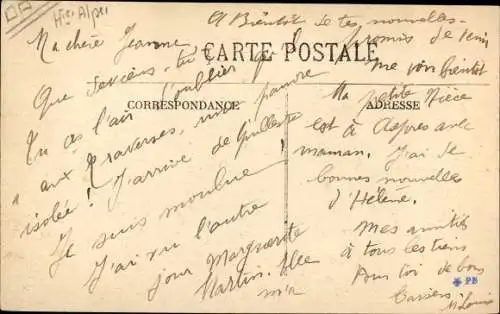 Htes Alpes
A Bientôt de tes nouvelles
Ma chère Jeanne
CARTE POSTALE
promis de venir
me voir bientôt
Que deviens-tu?
Tu as l'air l'oublier
CORRESPONDANCE
ADRESSE
"aux Traverses, ma pauvre
isolée! J'arrive de Guillestre
Je suis moulue!
J'ai vu l'autre
jour Marguerite
Martin. Elle
m'a
Ma petite Nièce
est à Aspres avec
maman. J'ai de
bonnes nouvelles
d'Hélène.
Mes amitiés
à tous les tiens
Pour toi de bons
baisers
M Louise
PB